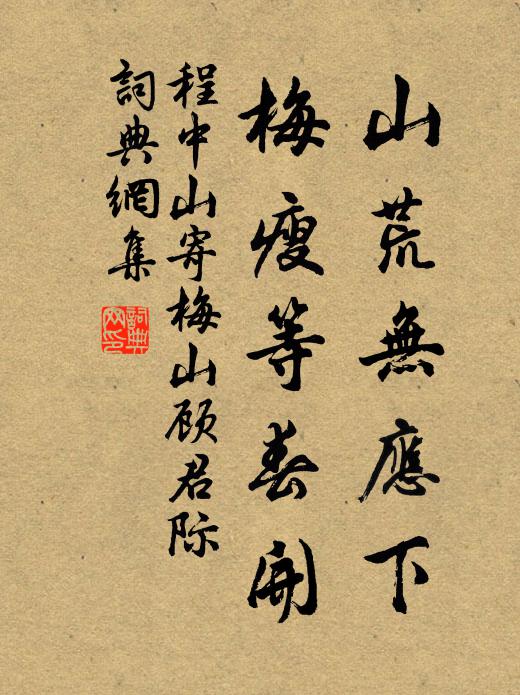 山荒無應下
梅瘦等春開
程中山寄梅山顾君际
詞典網集
詞典
网印